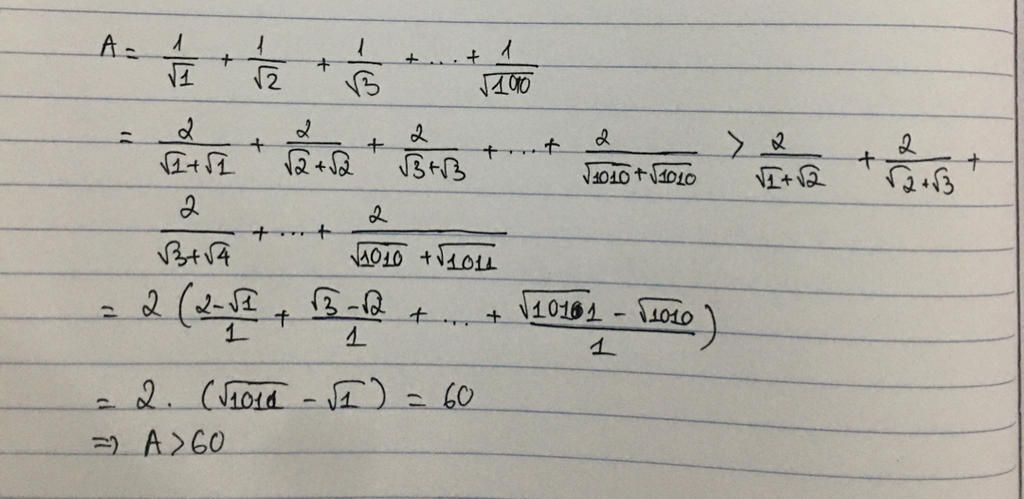 A = 1/√1 + 1/√2 + 1/√3 + ... + 1/√1010
= 2/(√1+√1) + 2/(√2+√2) + 2/(√3+√3) + ... + 2/(√1010+√1010) > 2/(√1+√2) + 2/(√2+√3) +
2/(√3+√4) + ... + 2/(√1010+√1011)
= 2 ( (2-√1)/1 + (√3-√2)/1 + ... + (√1011-√1010)/1 )
= 2. (√1011 - √1) = 60
⇒ A > 60